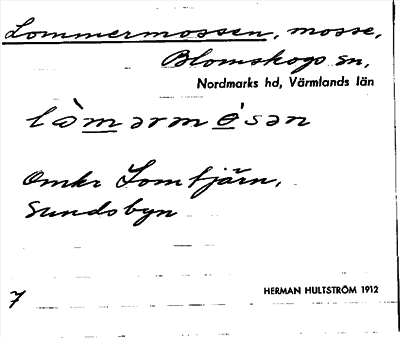 Lommermossen, mosse,
Blomskogs sn,
Nordmarks hd, Värmlands län
lòmərmésən
Omkr Lomtjärn,
Sundsbyn
7
HERMAN HULTSTRÖM 1912